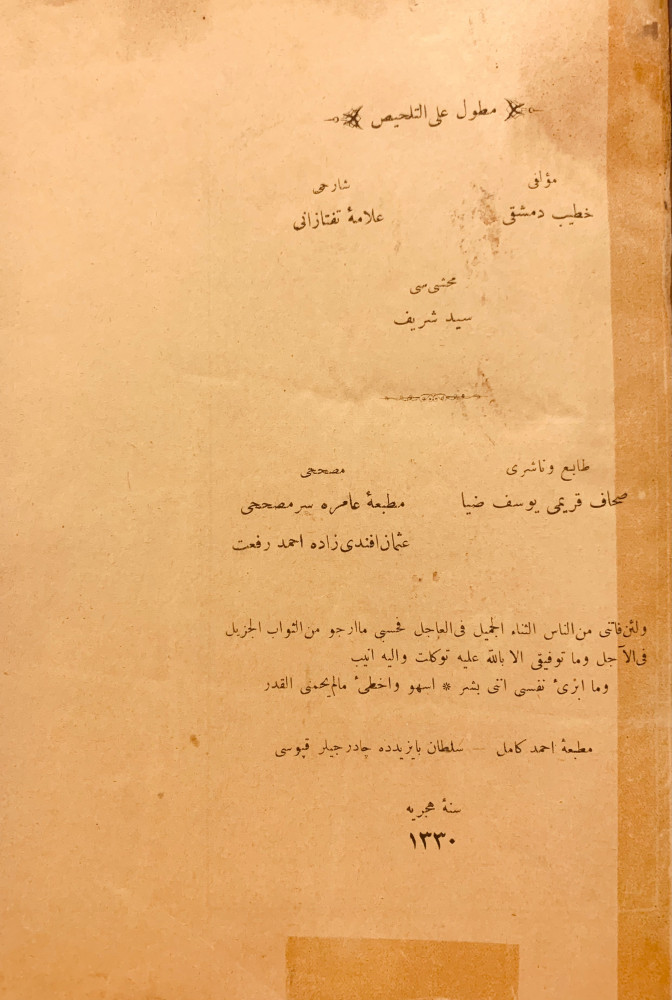 مطول على التلخيص
مؤلفى
شارحى
خطيب دمشقى
علامۀ تفتازانى
محشى سى
سيد شريف
طابع وناشرى
مصححى
صحاف قريمى يوسف ضيا
مطبعۀ عامره سر مصححى
عثمان افندى زاده احمد رفعت
ولئن فاتنى من الناس الثناء الجميل فى العاجل فحسبى ما ارجو من الثواب الجزيل
فى الآجل وما توفيقى الا بالله عليه توكلت واليه انيب
وما ابرئ نفسى اننى بشر * اسهو واخطئ مالم يحمنى القدر
مطبعۀ احمد كامل — سلطان بايزيدده چادرجيلر قپوسى
سنۀ هجريه
١٣٣٠